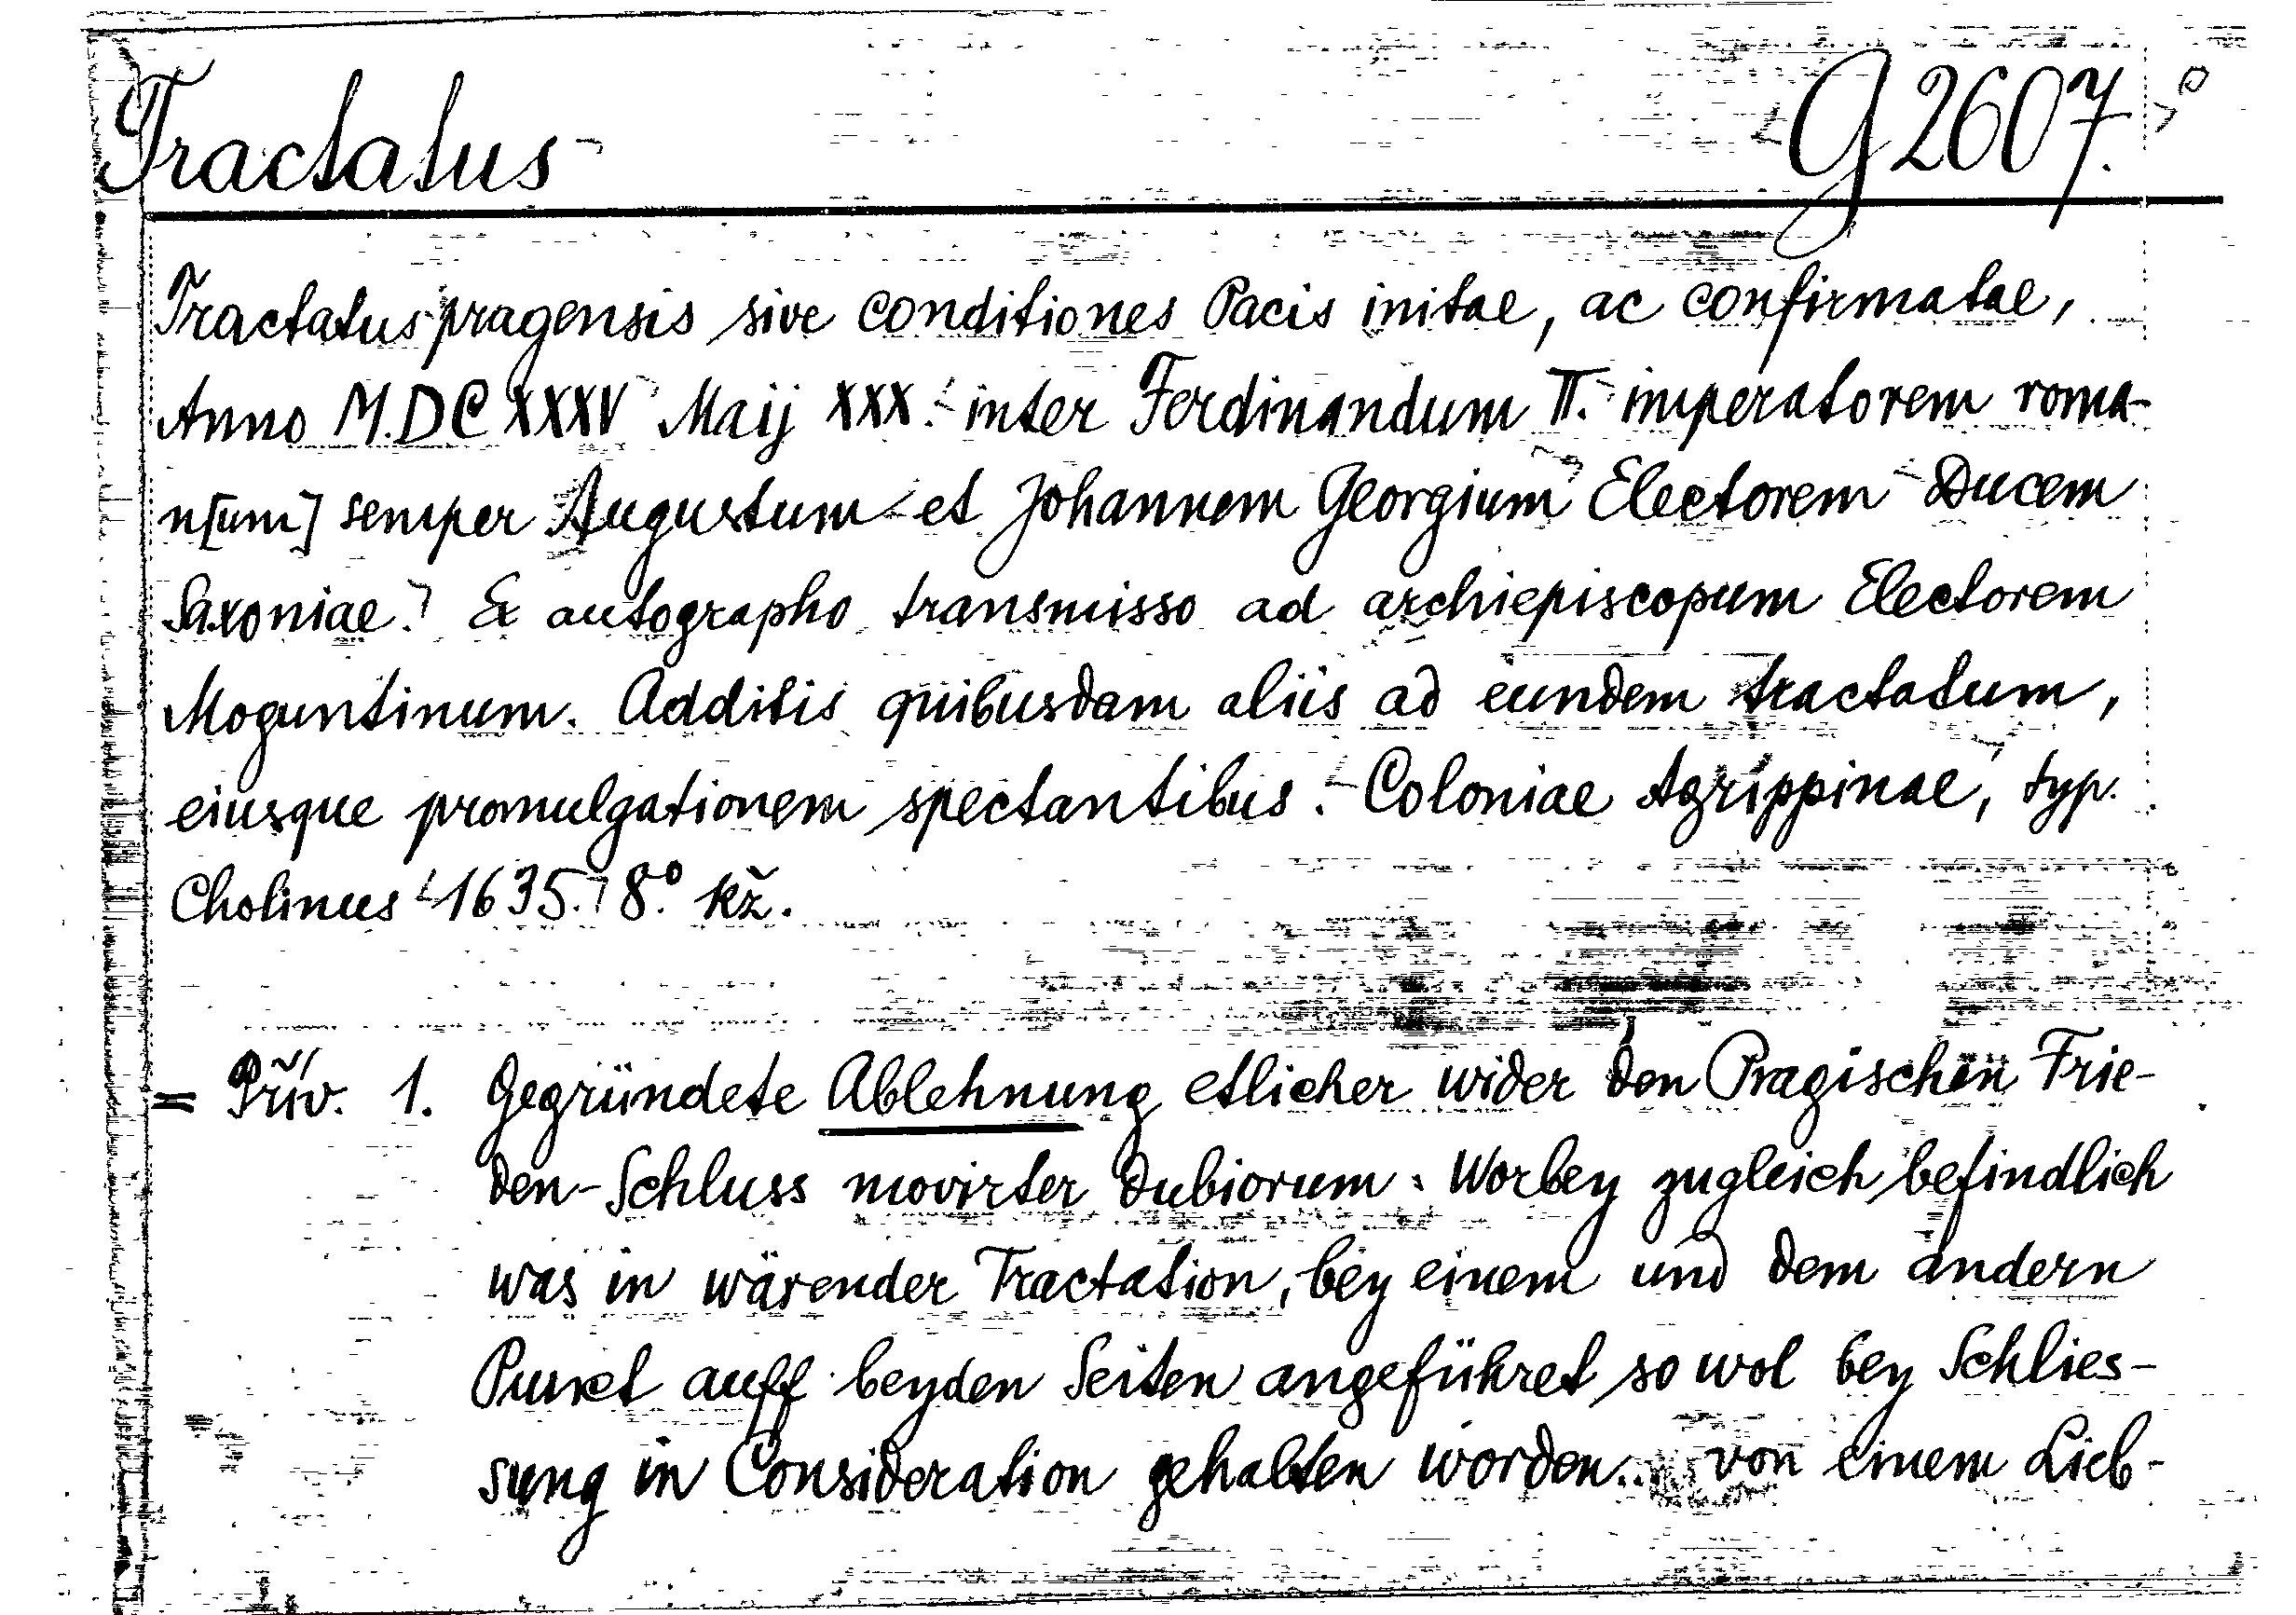 Tractatus G 2607.
Tractatus pragensis sive conditiones Pacis initae, ac confirmatae,
Anno M.DCXXXV Maij XXX. inter Ferdinandum II. imperatorem roma-
n[um] semper Augustum et Johannem Georgium Electorem Ducem
Saxoniae. Ex autographo transmisso ad archiepiscopum Electorem
Moguntinum. Additis quibusdam aliis ad eundem tractatum,
eiusque promulgationem spectantibus. Coloniae Agrippinae, typ.
Cholinus 1635. 8° kž.
= Přív. 1. Gegründete Ablehnung etlicher wider den Pragischen Frie-
den-Schluss movirter dubiorum. Worbey zugleich befindlich
was in wärender Tractation, bey einem und dem andern
Punct auff beyden Seiten angeführet so wol bey Schlies-
sung in Consideration gehalten worden. von einem Lieb-